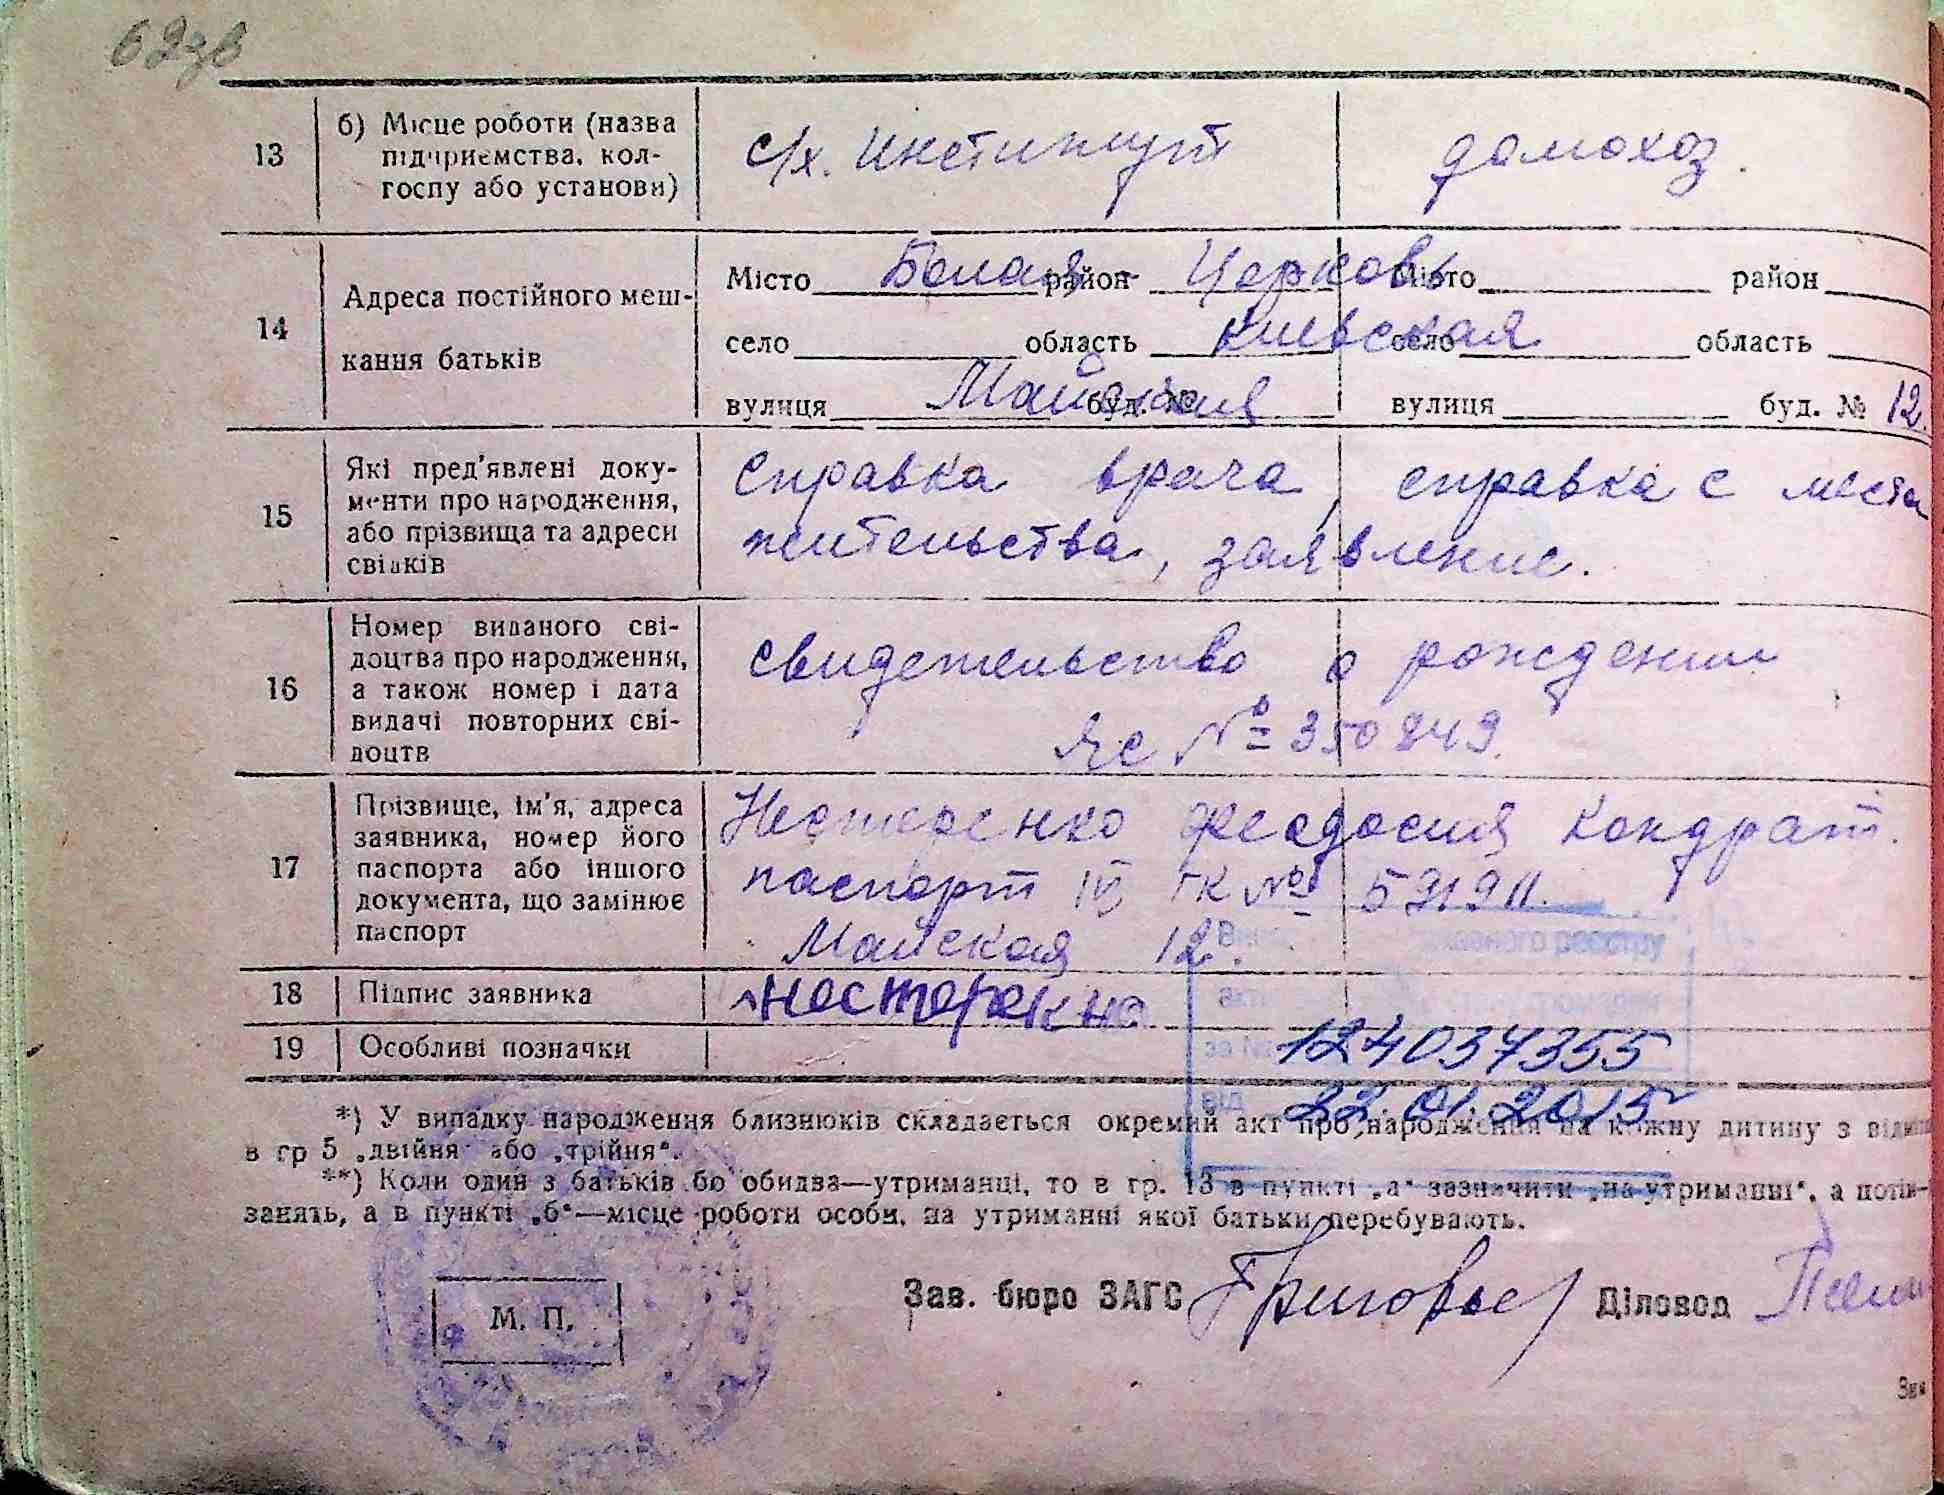 62зв
13 б) Місце роботи (назва
підприємства, кол-
госпу або установи)
с/х. Институт домохоз.
14 Адреса постійного меш-
кання батьків
Місто Белая район Церковь Місто район
село область Киевская село область
вулиця Майская буд. № вулиця буд. № 12.
15 Які пред'явлені доку-
менти про народження,
або прізвища та адреси
свідків
Справка врача, справка с места
жительства, заявление.
16 Номер виданого сві-
доцтва про народження,
а також номер і дата
видачі повторних сві-
доцтв
Свидетельство о рождении
№ 350849.
17 Прізвище, ім'я, адреса
заявника, номер його
паспорта або іншого
документа, що замінює
паспорт
Нестеренко Феодосия Кондрат.
паспорт IV ГК №
Майская 12.
18 Підпис заявника Нестеренко
19 Особливі позначки
державного реєстру
за № 124037355
від 22.01.2015
*) У випадку народження близнюків складається окремий акт про народження на кожну дитину з
в гр 5 „двійня" або „трійня".
**) Коли один з батьків бо обидва—утриманці, то в гр. 13 в пункті „а" зазначити „на утриманні", а потім-
занять, а в пункті „б"—місце роботи особи, на утриманні якої батьки перебувають.
М. П.
Зав. бюро ЗАГС Діловод